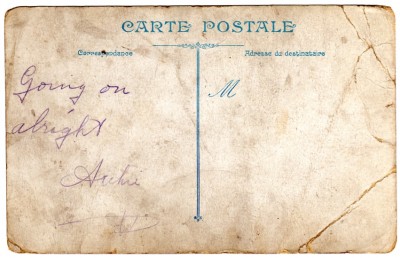 CARTE POSTALE
Correspondance
Adresse du destinataire
M
Going on
alright
Archie